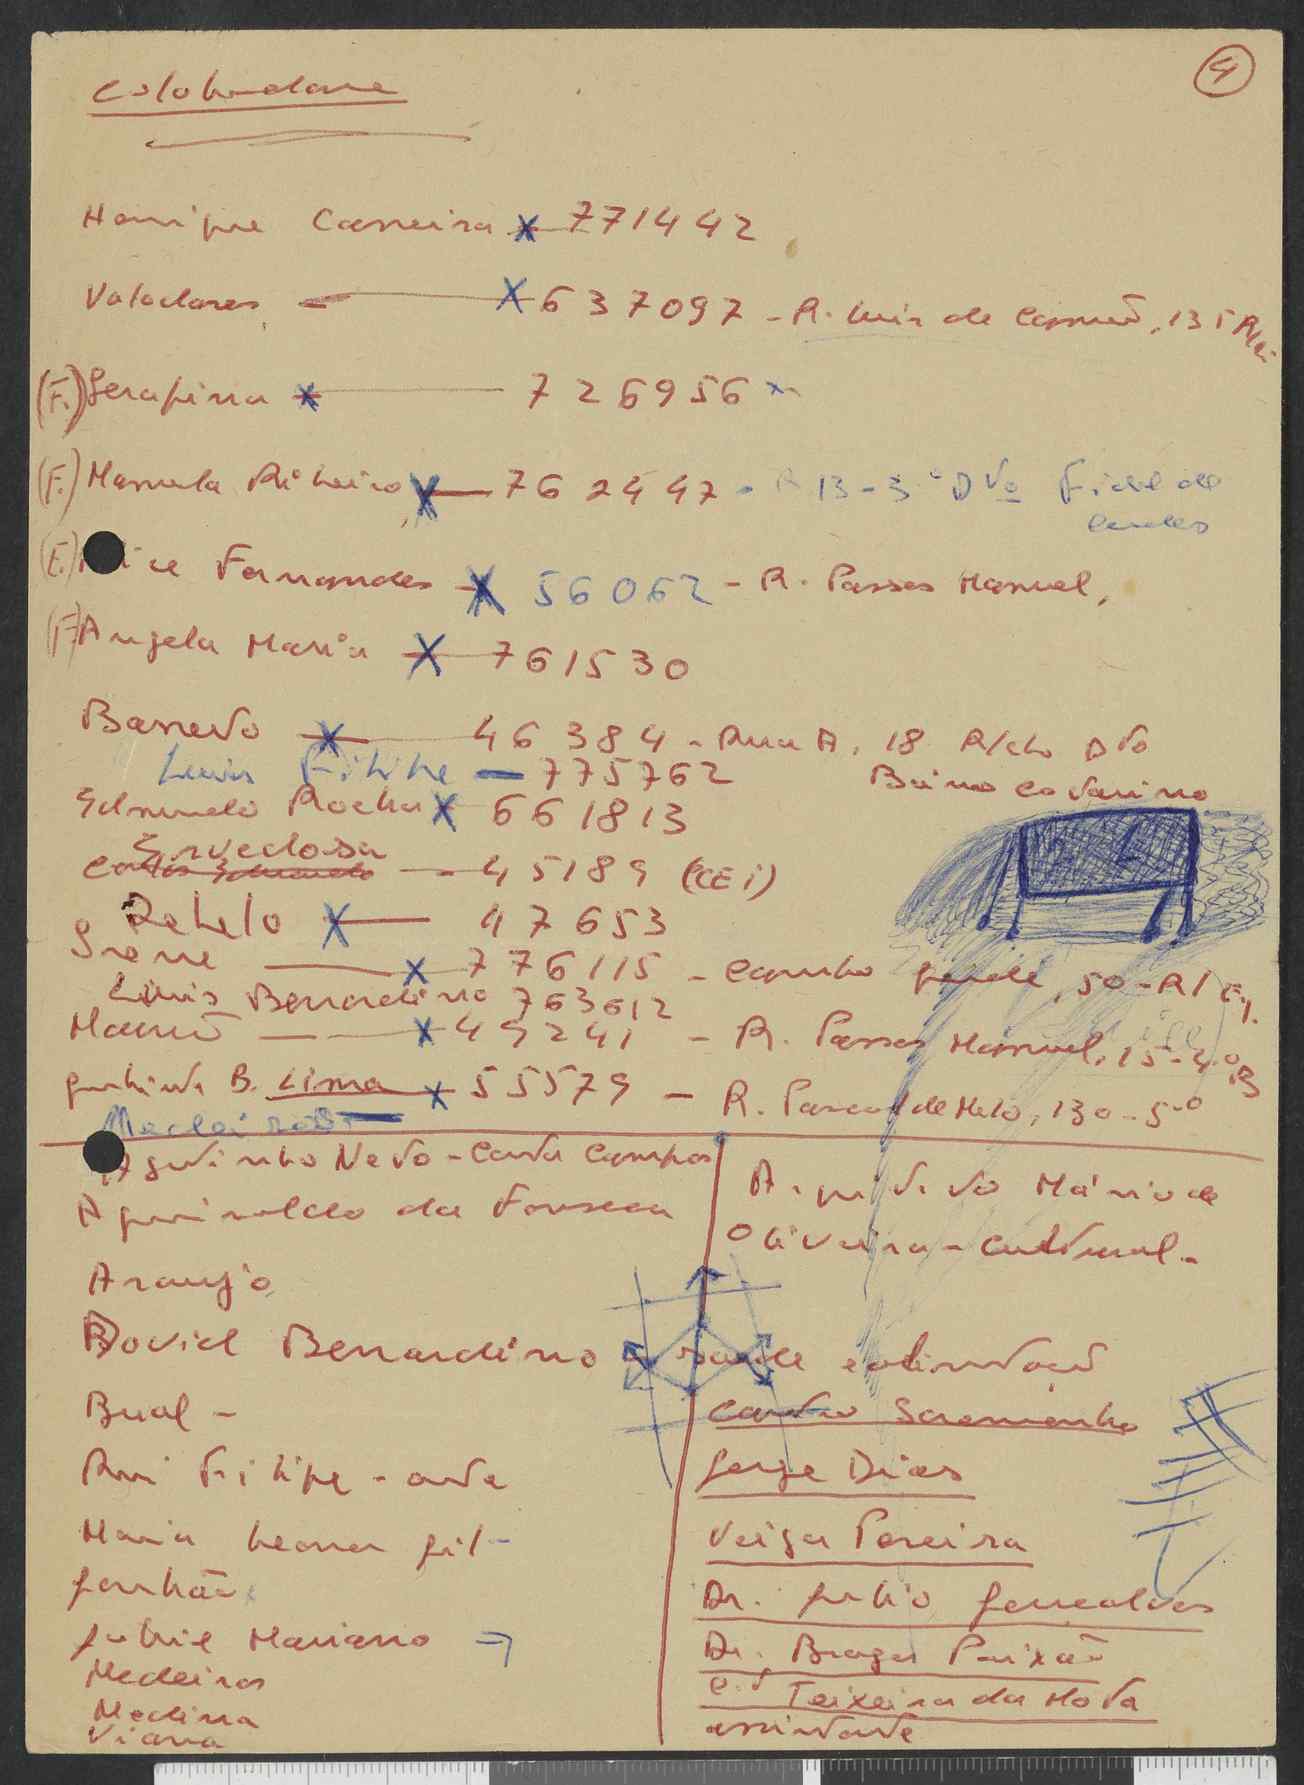 4
Colaboradores
Henrique Carreira x 771442
Valadares — x 637097 - R. Luis de Camões, 135 R/c
(F.) Serafina x — 726956
(F.) Manuela Ribeiro x — 762447 - R 13-3º Dto
(F.) Fernandes x 56062 - R. Passos Manuel,
(F.) Angela Maria x 761530
Barreto x — 46384 - Rua A, 18 R/ch Dto
Bairro Catarino
Luis Filipe — 775762
Edmundo Rocha x 661813
Ervedosa
— 45189 (CEI)
Rebelo x — 47653
Irene — x 776115 - Campo Grande, 50 - R/
Luis Bernardino 763612
x 49241 - R. Passos Manuel, 15-4º
B. Lima x 55579 - R. Pascoal de Melo, 130-5º
Medeiros —
Agostinho Neto - Carta Campos
Aguinaldo da Fonseca
Araujo
David Bernardino
Bual -
Rui Filipe - arte
Maria Leonor Gil -
Julieta Mariano
Medeiros
Medina
Viana
Arquitecto Mário de
Oliveira - cultural -
Castro Soromenho
Jorge Dias
Veiga Pereira
Dr. Julio Gonçalves
Dr. Braga Paixão
Teixeira da Mota